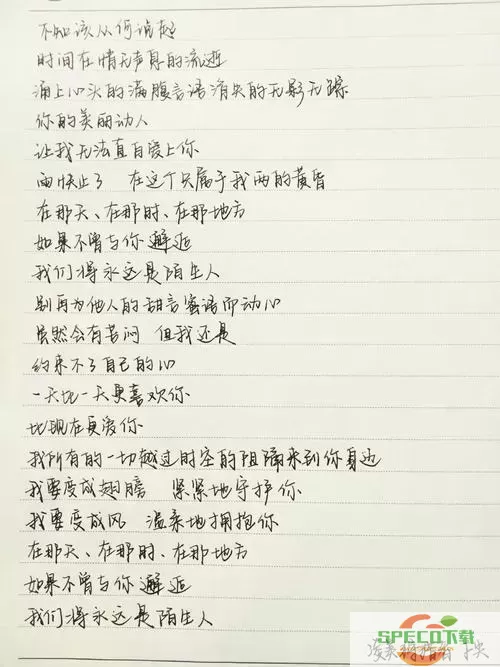 不知该从何说起
时间在情无声息的流逝
涌上心头的满腹言语消失的无影无踪
你的美丽动人
让我无法直白爱上你
雨快止了 在这个只属于我两的黄昏
在那天、在那时、在那地方
如果不曾与你邂逅
我们将永远是陌生人
别再为他人的甜言蜜语而动心
虽然会有苦闷 但我还是
约束不了自己的心
一天比一天更喜欢你
比现在更爱你
我所有的一切越过时空的阻隔来到你身边
我要变成翅膀 紧紧地守护你
我要变成风 温柔地拥抱你
在那天、在那时、在那地方
如果不曾与你邂逅
我们将永远是陌生人
SPECO下载